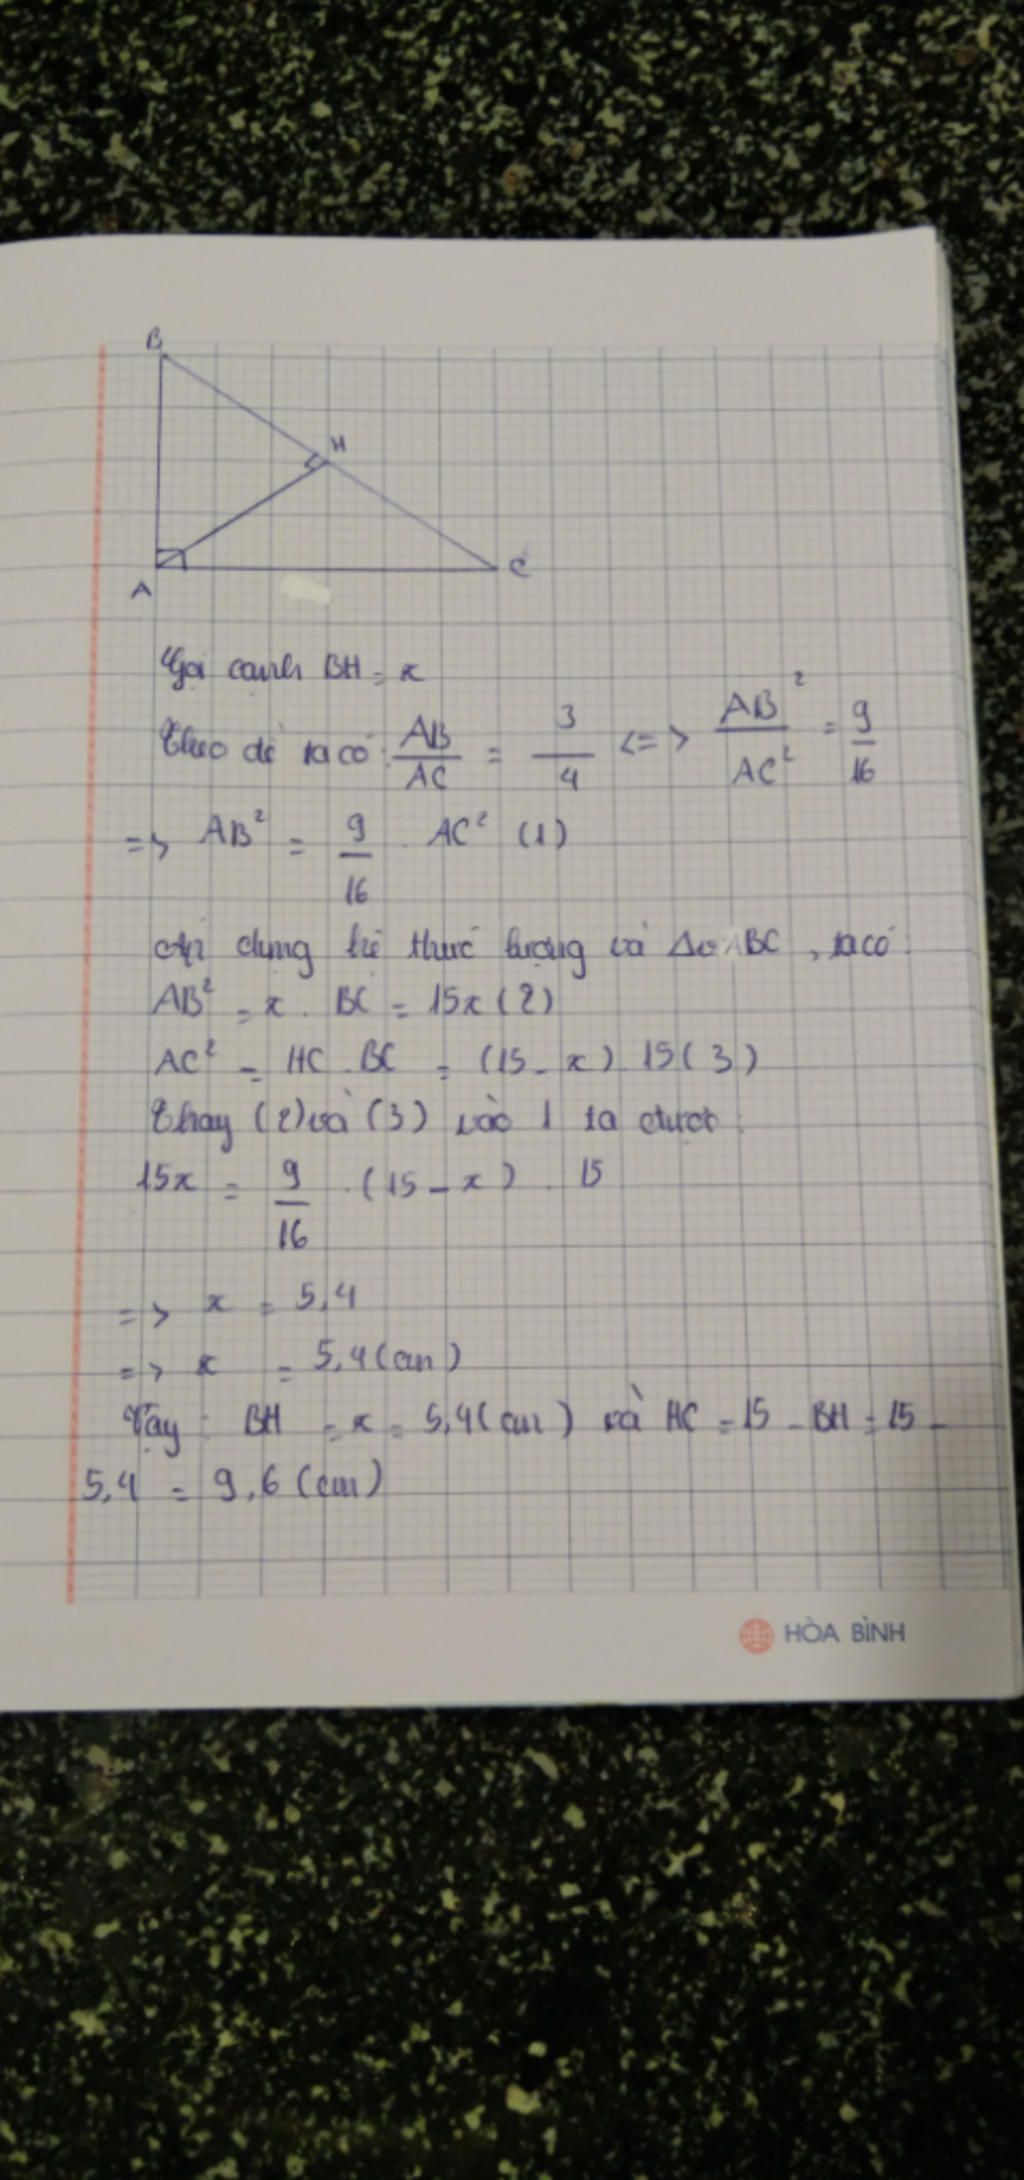 B
H
A
C
Gọi cạnh BH = x
Theo đề ta có: AB/AC = 3/4 <=> AB²/AC² = 9/16
=> AB² = 9/16 . AC² (1)
Áp dụng hệ thức lượng và Δv ABC, ta có:
AB² = x . BC = 15x (2)
AC² = HC . BC = (15 - x) 15 (3)
Thay (2) và (3) vào 1 ta được:
15x = 9/16 . (15 - x) . 15
=> x = 5,4
=> x = 5,4 (cm)
Vậy : BH = x = 5,4 (cm) và HC = 15 - BH = 15 -
5,4 = 9,6 (cm)
HÒA BÌNH